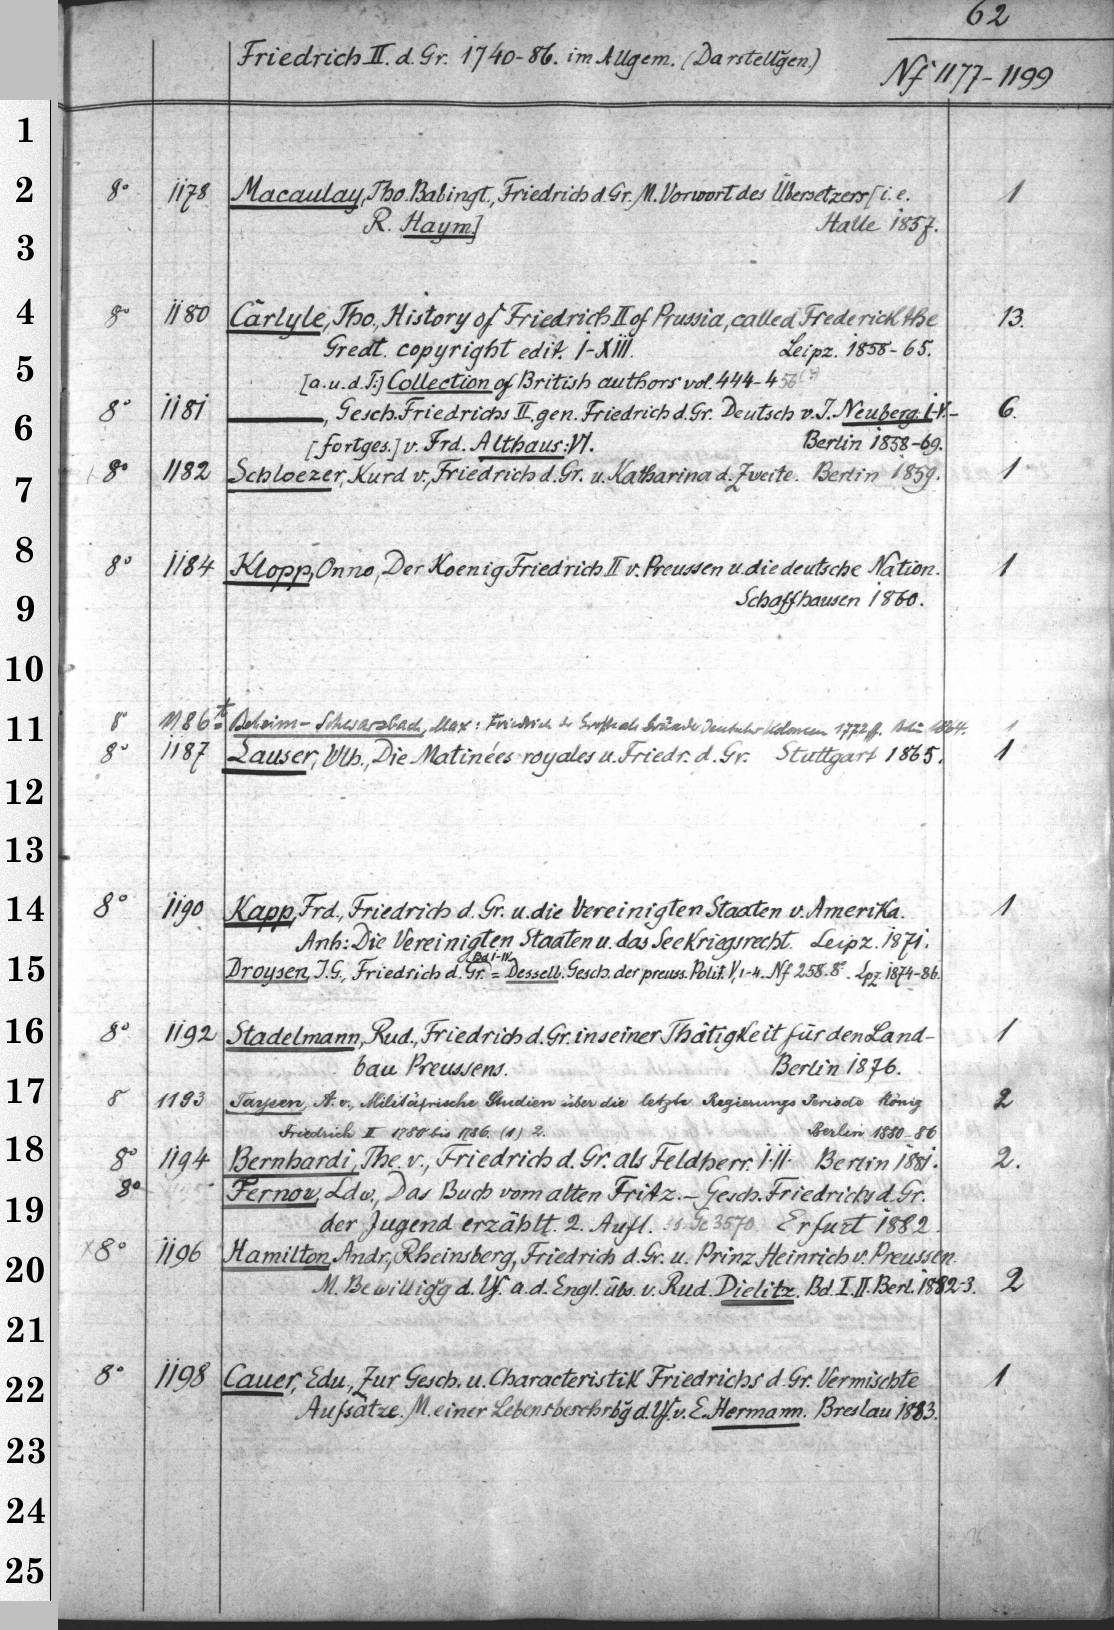 62
Friedrich II. d. Gr. 1740-86. im Allgem. (Darstellgen.)
Nf 1177-1199
1
2 8° 1178 Macaulay, Tho. Babingt., Friedrich d. Gr. M. Vorwort des Übersetzers [i.e. 1
R. Haym.] Halle 1857.
3
4 8° 1180 Carlyle, Tho., History of Friedrich II of Prussia, called Frederick the 13.
Great. copyright edit. I-XIII. Leipz. 1858-65.
5 [a.u.d.T:] Collection of British authors vol. 444-456
6 8° 1181 ———, Gesch. Friedrichs II. gen. Friedrich d. Gr. Deutsch v. J. Neuberg. I-V.- 6.
[fortges.] v. Frd. Althaus: VI. Berlin 1858-69.
7 8° 1182 Schloezer, Kurd v., Friedrich d. Gr. u. Katharina d. Zweite. Berlin 1859. 1
8 8° 1184 Klopp, Onno, Der Koenig Friedrich II v. Preussen u. die deutsche Nation. 1
9 Schaffhausen 1860.
10
11 8° 1186 Beheim-Schwarzbach, Max: Friedrich der Grosse als Gründer deutscher Kolonien 1772 ff. Berlin 1864. 1
8° 1187 Lauser, Wlh., Die Matinées royales u. Friedr. d. Gr. Stuttgart 1865. 1
12
13
14 8° 1190 Kapp, Frd., Friedrich d. Gr. u. die Vereinigten Staaten v. Amerika. 1
Anh: Die Vereinigten Staaten u. das Seekriegsrecht. Leipz. 1871.
Bd I-IV
15 Droysen, J.G., Friedrich d. Gr. = Dessell. Gesch. der preuss. Polit. V, 1-4. Nf 258. 8°. Lpz 1874-86.
16 8° 1192 Stadelmann, Rud., Friedrich d. Gr. in seiner Thätigkeit für den Land- 1
bau Preussens. Berlin 1876.
17 8° 1193 Taysen, A. v., Militärische Studien über die letzte Regierungs Periode König 2
Friedrich II 1780 bis 1786. (1) 2. Berlin 1880-86
18 8° 1194 Bernhardi, The. v., Friedrich d. Gr. als Feldherr. I-II. Berlin 1881. 2.
8° Fernow, Ldw., Das Buch vom alten Fritz. - Gesch. Friedrichs d. Gr.
19 der Jugend erzählt. 2. Aufl. s. Gc 3570. Erfurt 1882.
20 ×8° 1196 Hamilton, Andr., Rheinsberg, Friedrich d. Gr. u. Prinz Heinrich v. Preussen.
M. Bewilligg d. Vf. a. d. Engl. übs. v. Rud. Dielitz. Bd. I. II. Berl. 1882-3. 2
21
22 8° 1198 Cauer, Edu., Zur Gesch. u. Characteristik Friedrichs d. Gr. Vermischte 1
Aufsätze. M. einer Lebensbeschrbg d. Vf. v. E. Hermann. Breslau 1883.
23
24
25